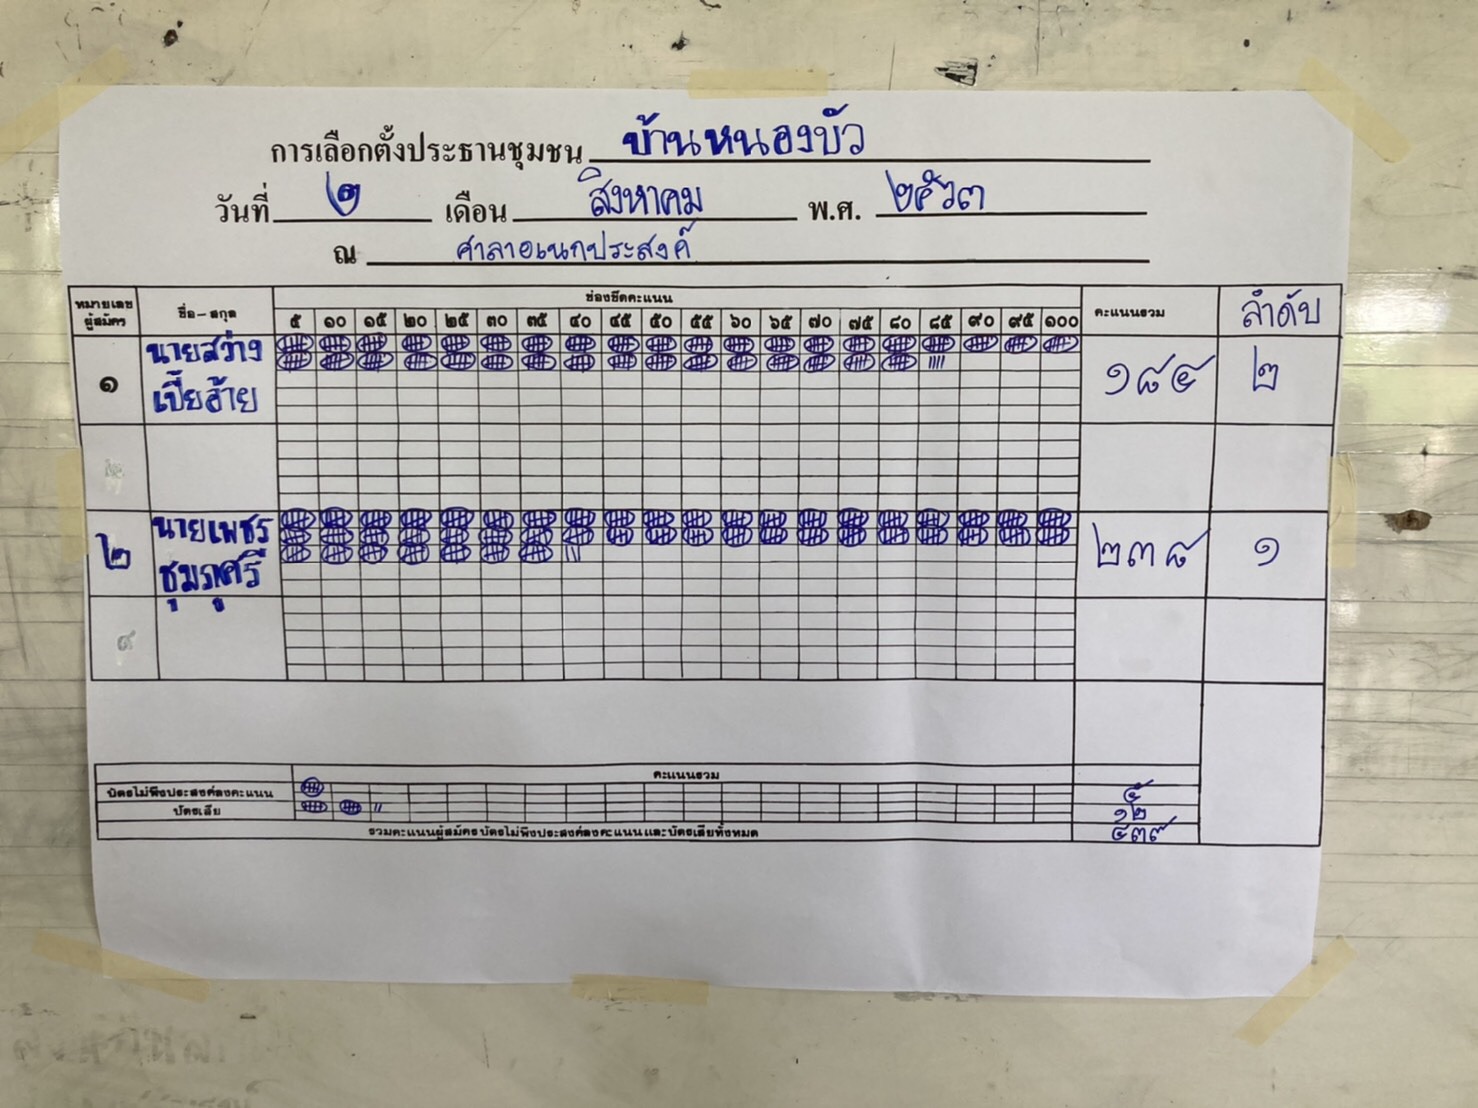 การเลือกตั้งประธานชุมชน บ้านหนองบัว
วันที่ ๒ เดือน สิงหาคม พ.ศ. ๒๕๖๓
ณ ศาลาอเนกประสงค์
หมายเลขผู้สมัคร ชื่อ-สกุล ช่องขีดคะแนน คะแนนรวม ลำดับ
๕ ๑๐ ๑๕ ๒๐ ๒๕ ๓๐ ๓๕ ๔๐ ๔๕ ๕๐ ๕๕ ๖๐ ๖๕ ๗๐ ๗๕ ๘๐ ๘๕ ๙๐ ๙๕ ๑๐๐
๑ นายสว่าง เปี้ยฮ้าย ๑๘๔ ๒
๒ นายเพชร ๒๓๘ ๑
คะแนนรวม
บัตรไม่พึงประสงค์ลงคะแนน ๕
บัตรเสีย ๑๒
รวมคะแนนผู้สมัคร บัตรไม่พึงประสงค์ลงคะแนน และบัตรเสียทั้งหมด ๔๓๙